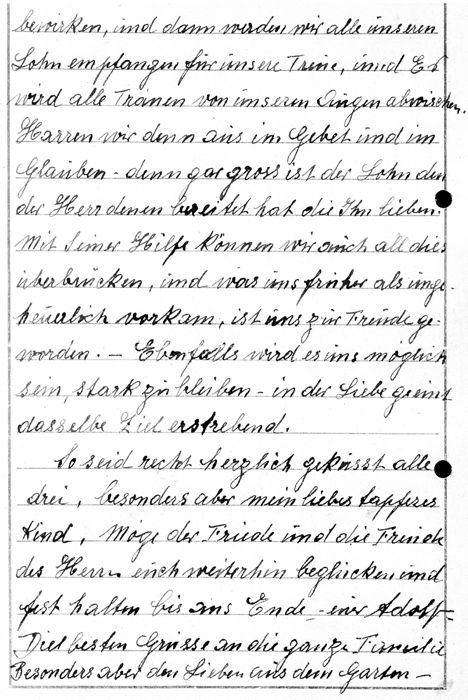 bewirken, und dann werden wir alle unseren
Lohn empfangen für unsere Treue, und Er
wird alle Tränen von unseren Augen abwischen.
Harren wir denn aus im Gebet und im
Glauben - denn gar gross ist der Lohn den
der Herr denen bereitet hat die Ihn lieben.
Mit Seiner Hilfe können wir auch all dies
überbrücken, und was uns früher als unge-
heuerlich vorkam, ist uns zur Freude ge-
worden. - Ebenfalls wird es uns möglich
sein, stark zu bleiben - in der Liebe geeint
dasselbe Ziel erstrebend.
So seid recht herzlich geküsst alle
drei, besonders aber mein liebes tapferes
Kind, Möge der Friede und die Freude
des Herrn euch weiterhin beglücken und
fest halten bis ans Ende - euer Adolf -
Viel besten Grüsse an die ganze Familie
Besonders aber den Lieben aus dem Garten -